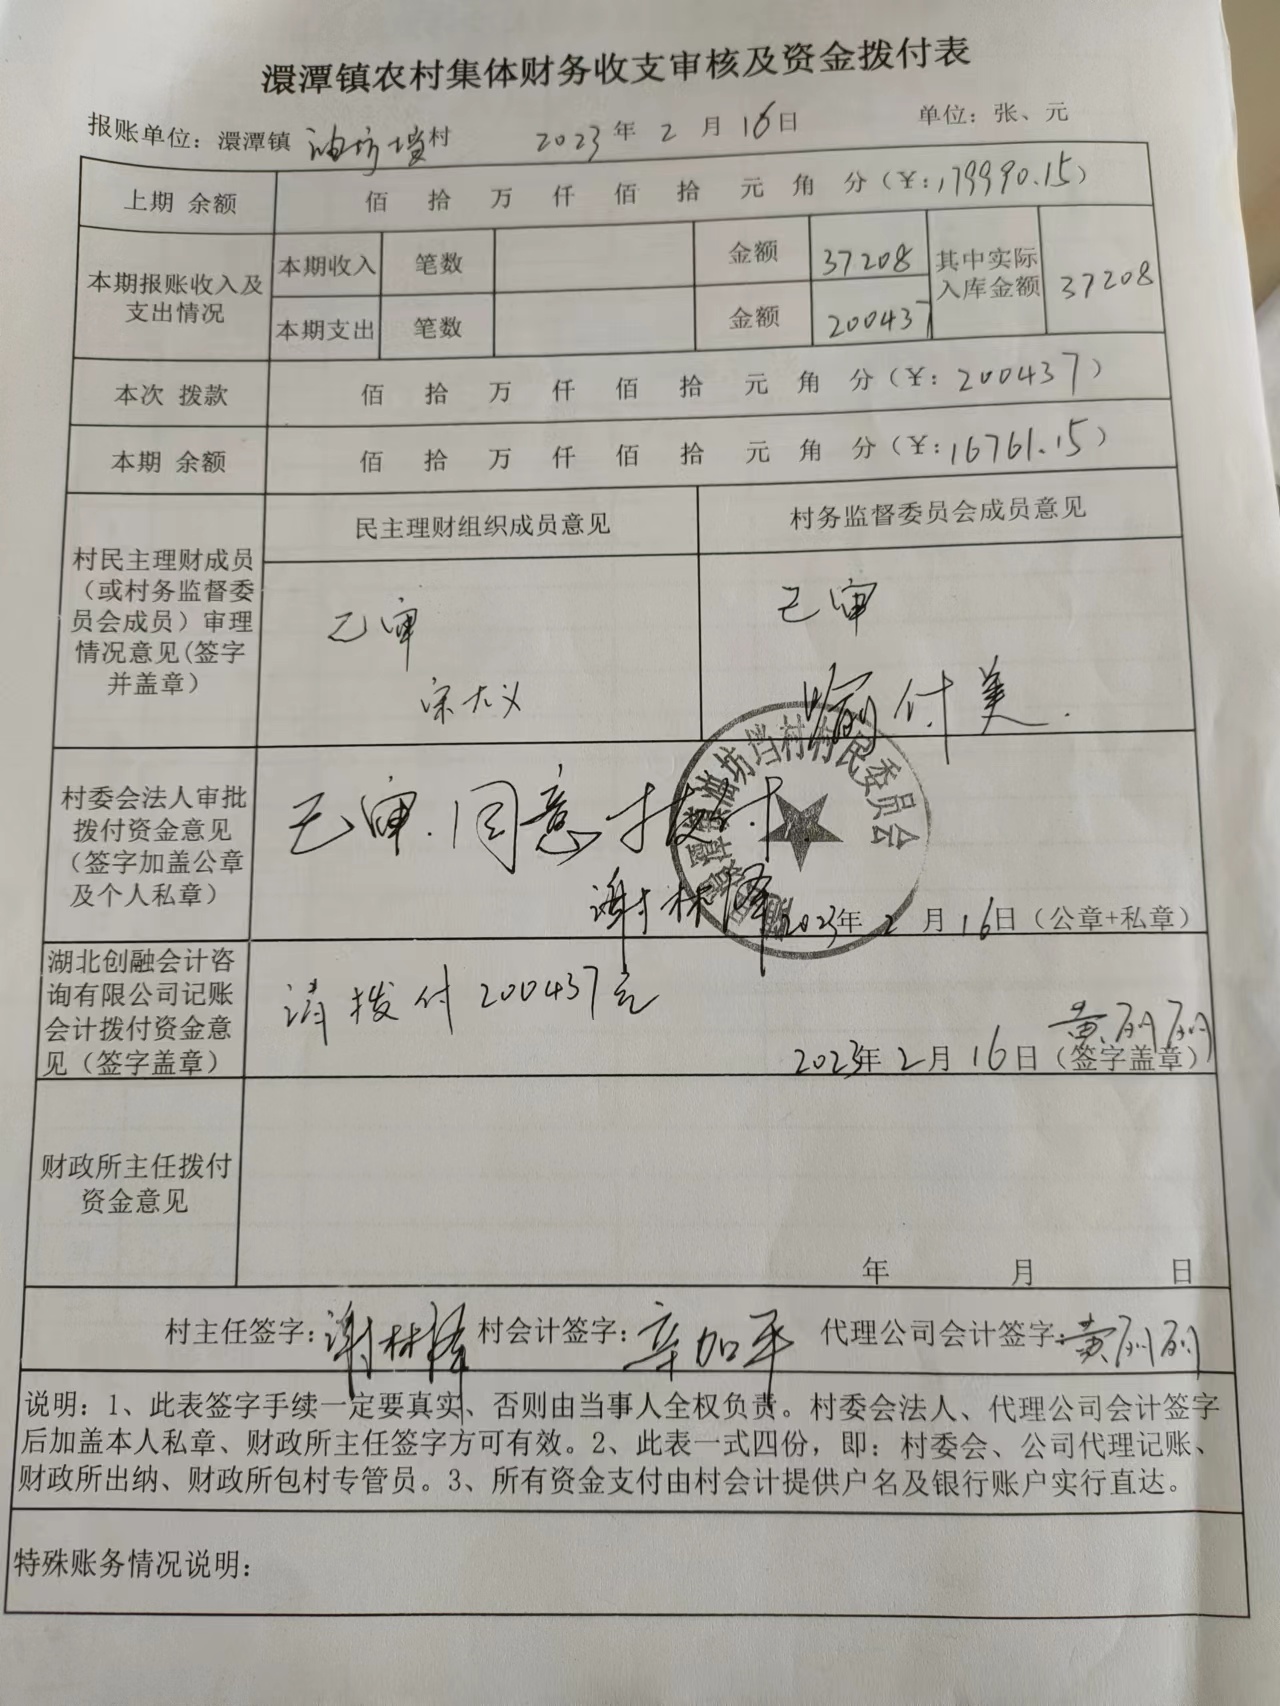 澴潭镇农村集体财务收支审核及资金拨付表
报账单位：澴潭镇 油坊垱村 2023年2月16日 单位：张、元
上期 余额 佰 拾 万 仟 佰 拾 元 角 分（￥：179990.15）
本期报账收入及
支出情况
本期收入 笔数 金额 37208
其中实际
入库金额
37208
本期支出 笔数 金额 200437
本次 拨款 佰 拾 万 仟 佰 拾 元 角 分（￥：200437）
本期 余额 佰 拾 万 仟 佰 拾 元 角 分（￥：16761.15）
村民主理财成员
（或村务监督委
员会成员）审理
情况意见(签字
并盖章）
民主理财组织成员意见
已审
宋大义
村务监督委员会成员意见
已审
付美
村委会法人审批
拨付资金意见
（签字加盖公章
及个人私章）
已审.同意拨付.
谢林
油坊垱村村民委员会
2023年2月16日（公章+私章）
湖北创融会计咨
询有限公司记账
会计拨付资金意
见（签字盖章）
请拨付200437元
黄丽丽
2023年2月16日（签字盖章）
财政所主任拨付
资金意见
年 月 日
村主任签字：谢林 村会计签字：辛加平 代理公司会计签字：黄丽丽
说明：1、此表签字手续一定要真实、否则由当事人全权负责。村委会法人、代理公司会计签字
后加盖本人私章、财政所主任签字方可有效。2、此表一式四份，即：村委会、公司代理记账、
财政所出纳、财政所包村专管员。3、所有资金支付由村会计提供户名及银行账户实行直达。
特殊账务情况说明：